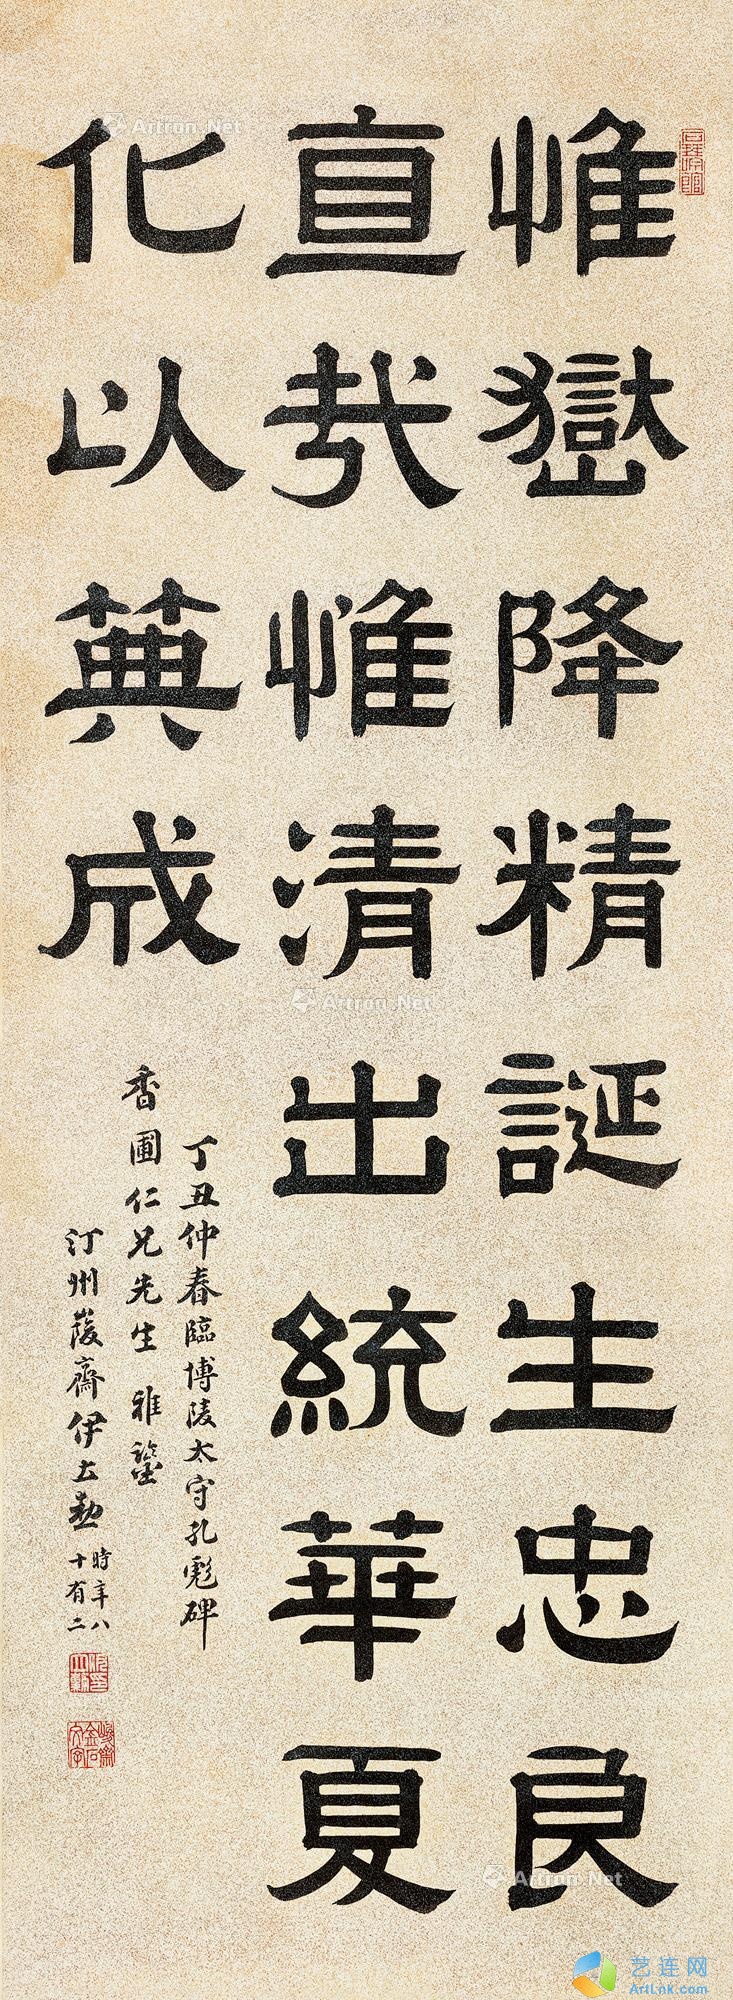 惟嶽降精誕生忠良
直哉惟清出統華夏
化以典成
丁丑仲春臨博陵太守孔彪碑
香圃仁兄先生 雅鑒
汀州峻齋伊立勳時年八十有二
峻齋金石文字
Artron.Net
Artron.Net
Artron.Net
艺连网
ArtLnk.com